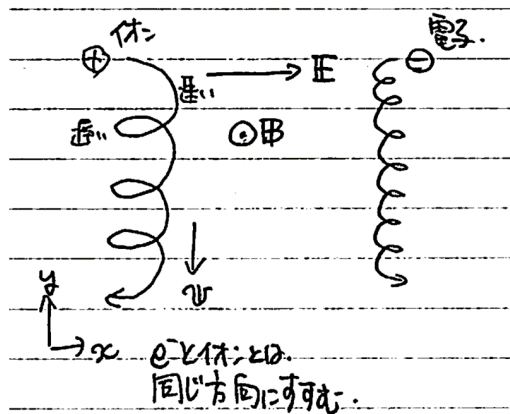 イオン
電子.
⊕
⊖
速い
E
遅い
⊙B
v
y
x
e⁻とイオンとは.
同じ方向にすすむ.